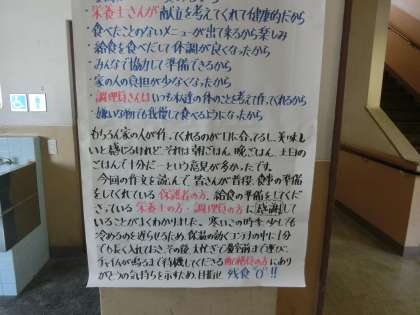 ・栄養士さんが献立を考えてくれて健康的だから
・食べたことのないメニューが出て来るから楽しみ
・給食を食べだして体調が良くなったから
・みんなで協力して準備できるから
・家の人の負担が少なくなったから
・調理員さんはいつも私達の体のことを考えて作ってくれるから
・嫌いな物でも我慢して食べるようになったから
もちろん家の人が作ってくれるのが口に合ってるし、美味し
いと感じるけれど、それは朝ごはん、晩ごはん、土日の
ごはんで十分だーという意見が多かったです。
今回の作文を読んで、皆さんが普段、食事の準備
をしてくれている保護者の方、給食の準備をしてくだ
さっている栄養士の方・調理員の方に「感謝」して
いることがよくわかりました。寒いこの時季、少しでも
冷めるのを遅らせるため、保温の効くコンテナの中に1分
でも長く入れておき、その後、大いそぎで教室前まで運び、
チャイムが鳴るまで待機してくださる配膳員の方にあり
がとうの気持ちを示すため、目指せ 残食"0"!!